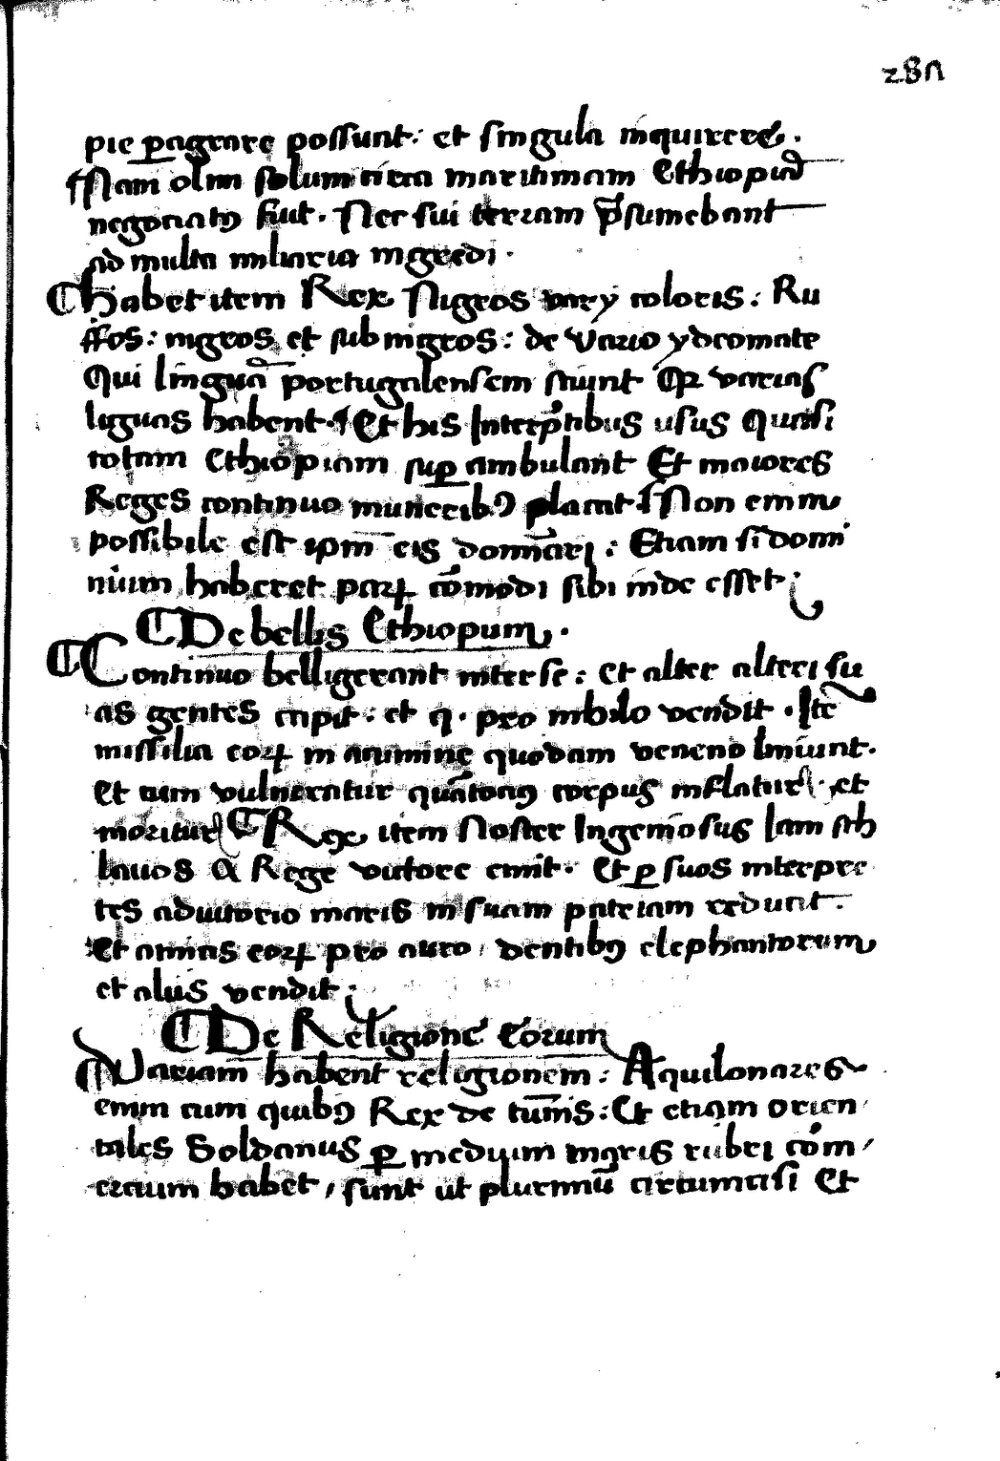 287
pie ꝑagrare possunt: et singula inquirere.
Nam olim solum circa maritimam Ethiopiā
negociatꝯ fuit. Nec sui terram p̄sumebant
ad multa miliaria ingredi.
Habet item Rex Nigros varÿ coloris: Ru
ffos: nigros et subnigros: de vario ydeomate
Qui linguā portugalensem sciunt Qꝛ varias
liguas habent. Et his Interp̄tibus usus Quasi
totam ethiopiam suꝑ ambulant Et maiores
Reges continuo muneribꝯ placat Non enim
possibile est ipm̄ eis domin̄ari: Etiam si domi
nium haberet parꝝ cōmodi sibi inde esset:
De bellis Ethiopum.
Continuo belligerant inter se: et alter alteri su
as gentes capit: et q. pro nihilo vendit. Itē
missilia eoꝝ in acumine quodam veneno liniunt.
et cum vulneratur quātocius corpus inflatur: et
moritur Rex item Noster Ingeniosus Iam sch
lavos A Rege victore emit. Et ꝑ suos interpre
tes adiutorio maris in suam patriam reducit.
Et animas eoꝝ pro auro, dentibꝯ elephantorum
et aliis vendit:
De Religione Eorum
Variam habent religionem: Aquilonares
enim cum quibꝯ Rex de tunis: Et etiam orien
tales Soldanus ꝑ medium maris rubri cōm
ercium habet, sunt ut plurimū circumcisi Et